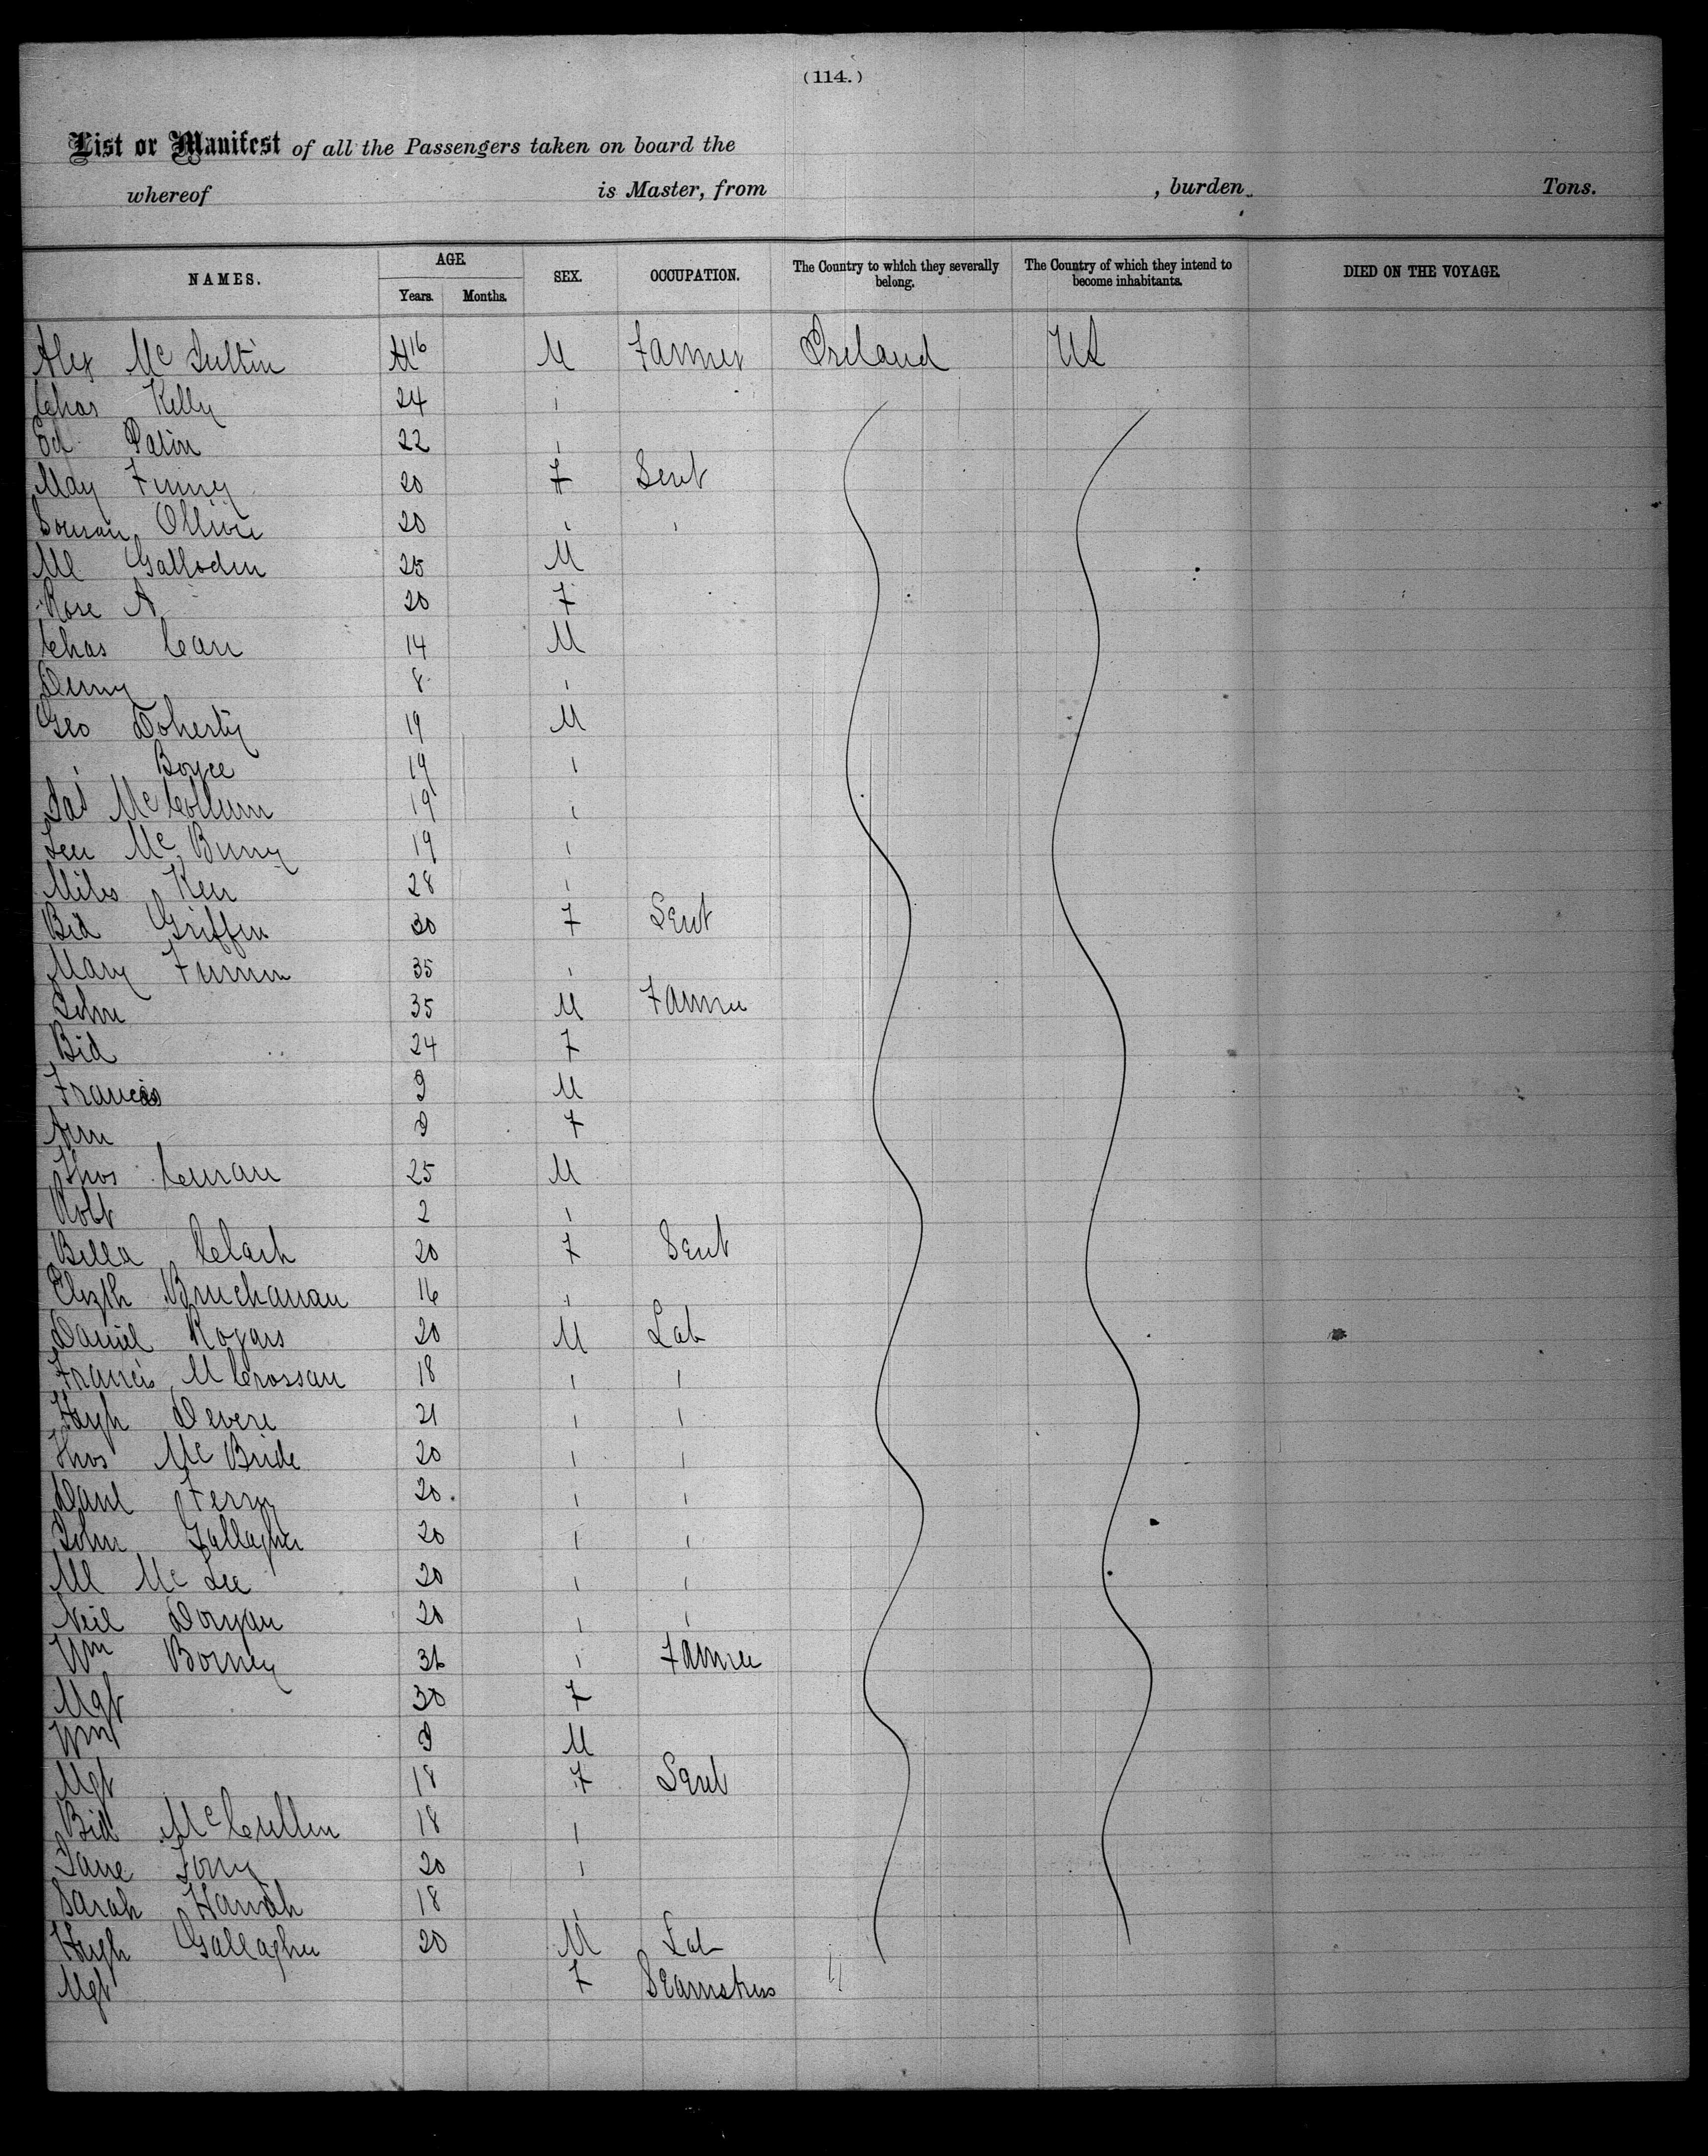 (114.)
List or Manifest of all the Passengers taken on board the
whereof is Master, from , burden Tons.
NAMES. AGE. SEX. OCCUPATION. The Country to which they severally belong. The Country of which they intend to become inhabitants. DIED ON THE VOYAGE.
Years. Months.
Alex Mc 16 M Farmer Ireland US
Chas Kelly 24 "
Ed 22 "
May 20 F Servt
20 " "
Ml 25 M
Rose A 20 F
Chas Carr 14 M
Denny 8 "
Geo Doherty 19 M
" Boyce 19 "
Jas McCollum 19 "
Mc 19 "
Miles Kerr 28 "
Bid Griffin 30 F Servt
Mary 35 "
John 35 M Farmer
Bid 24 F
Francis 9 M
Ann 8 F
Thos Curran 25 M
Robt 2 "
Bella 20 F Servt
Elizth Buchanan 16 "
Daniel Rogars 20 M Lab
Francis McCrossan 18 " "
Hugh Devere 21 " "
Thos McBride 20 " "
Danl Ferry 20 " "
John Gallagher 20 " "
Ml Mc Lee 20 " "
Neil 20 " "
Wm Borney 36 " Farmer
Mgt 30 F
Wm 9 M
Mgt 18 F Servt
Bid McCullen 18 "
Jane 20 "
Sarah Hannah 18 "
Hugh Gallagher 20 M Lab
Mgt F Seamstress "